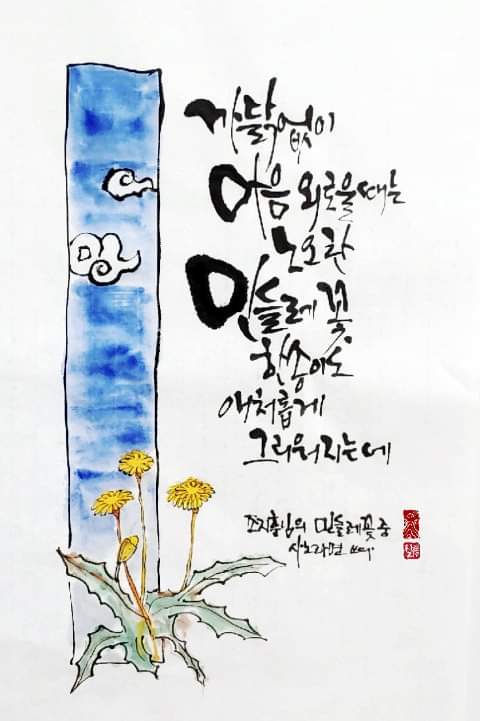 까닭없이
마음 외로울 때는
노오란
민들레 꽃
한송이도
애처롭게
그리워지는데
조지훈님의 민들레꽃 중